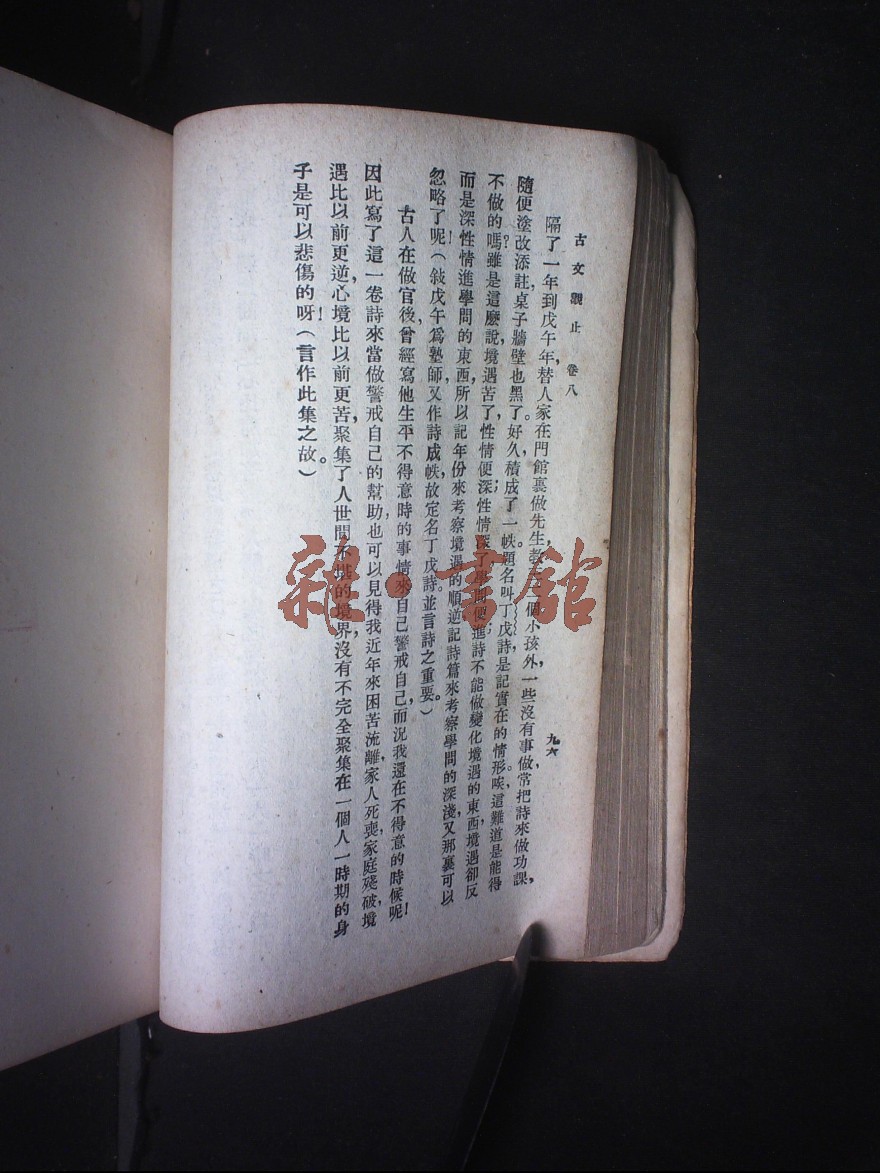 古文觀止 卷八 九六
隔了一年到戊午年，替人家在門館裏做先生，教二三個小孩外，一些沒有事做，常把詩來做功課，
隨便塗改添註，桌子牆壁也黑了。好久積成了一帙，題名叫丁戊詩，是記實在的情形。唉！這難道是能得
不做的嗎？雖是這麼說，境遇苦了，性情便深；性情深了，學問便進；詩不能做變化境遇的東西，境遇卻反
而是深性情進學問的東西，所以記年份來考察境遇的順逆，記詩篇來考察學問的深淺，又那裏可以
忽略了呢！（敍戊午爲塾師又作詩成帙故定名丁戊詩並言詩之重要。）
古人在做官後，曾經寫他生平不得意時的事情，來自己警戒自己，而況我還在不得意的時候呢！
因此寫了這一卷詩來當做警戒自己的幫助，也可以見得我近年來困苦流離，家人死喪，家庭殘破，境
遇比以前更逆，心境比以前更苦，聚集了人世間不堪的境界，沒有不完全聚集在一個人一時期的身
子是可以悲傷的呀！（言作此集之故。）
雜·書館